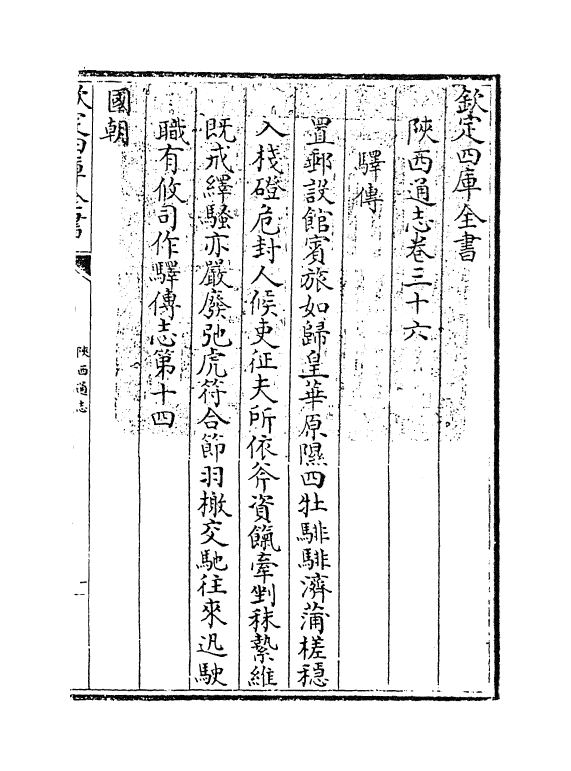 欽定四庫全書
陝西通志卷三十六
驛傳
置郵設館賓旅如歸皇華原隰四牡騑騑濟蒲槎穩
入棧磴危封人候吏征夫所依斧資餼牽剉秣縶維
既戒繹騷亦嚴廢弛虎符合節羽檄交馳往來迅駛
職有攸司作驛傳志第十四
國朝
欽定四庫全書
陝西通志
一